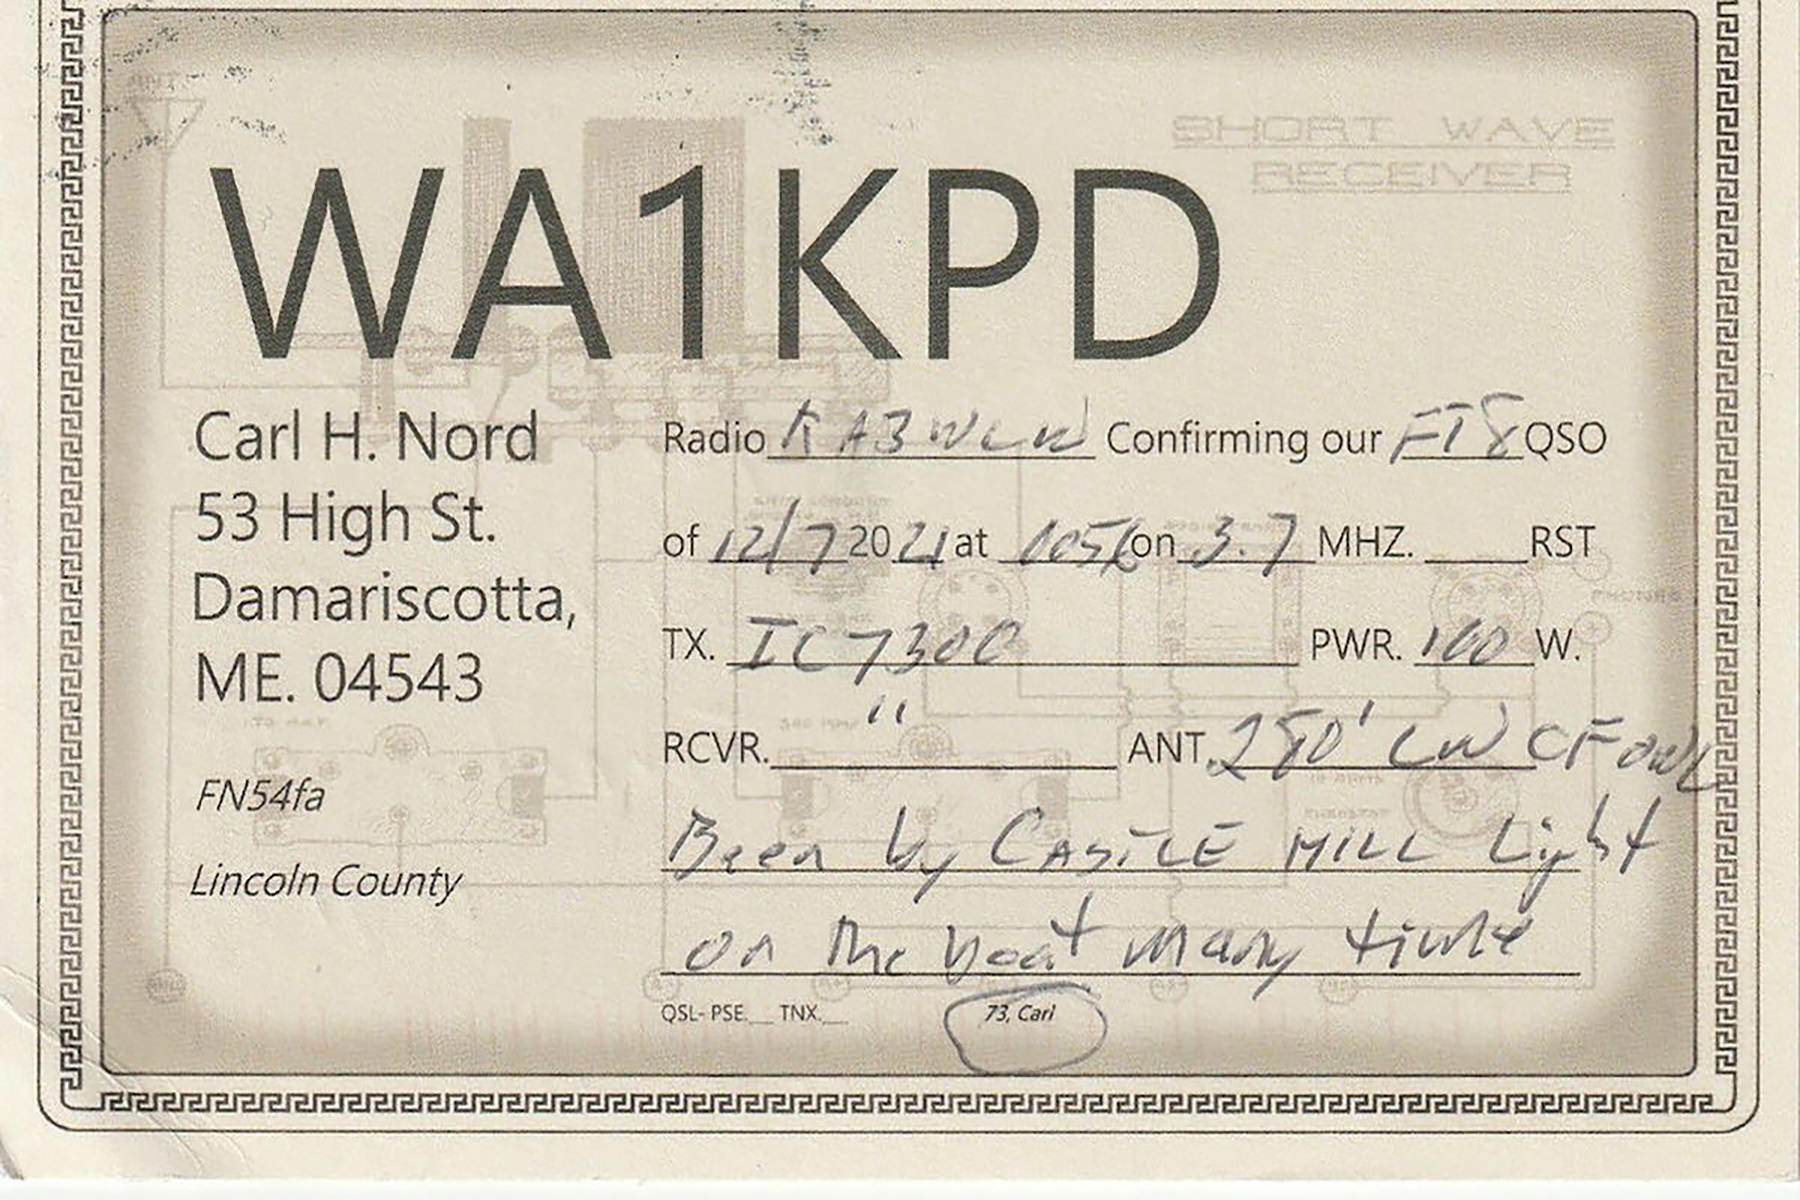 SHORT WAVE
RECEIVER
WA1KPD
Carl H. Nord
53 High St.
Damariscotta,
ME. 04543
FN54fa
Lincoln County
Radio KA3WCW Confirming our FT8 QSO
of 12/7 2021 at 0056 on 3.7 MHZ. ____ RST
TX. IC7300 PWR. 100 W.
RCVR. " ANT. 280' LW CF OWL
Been by CASTLE HILL Light
on the boat many time
QSL- PSE.__ TNX.__ 73, Carl